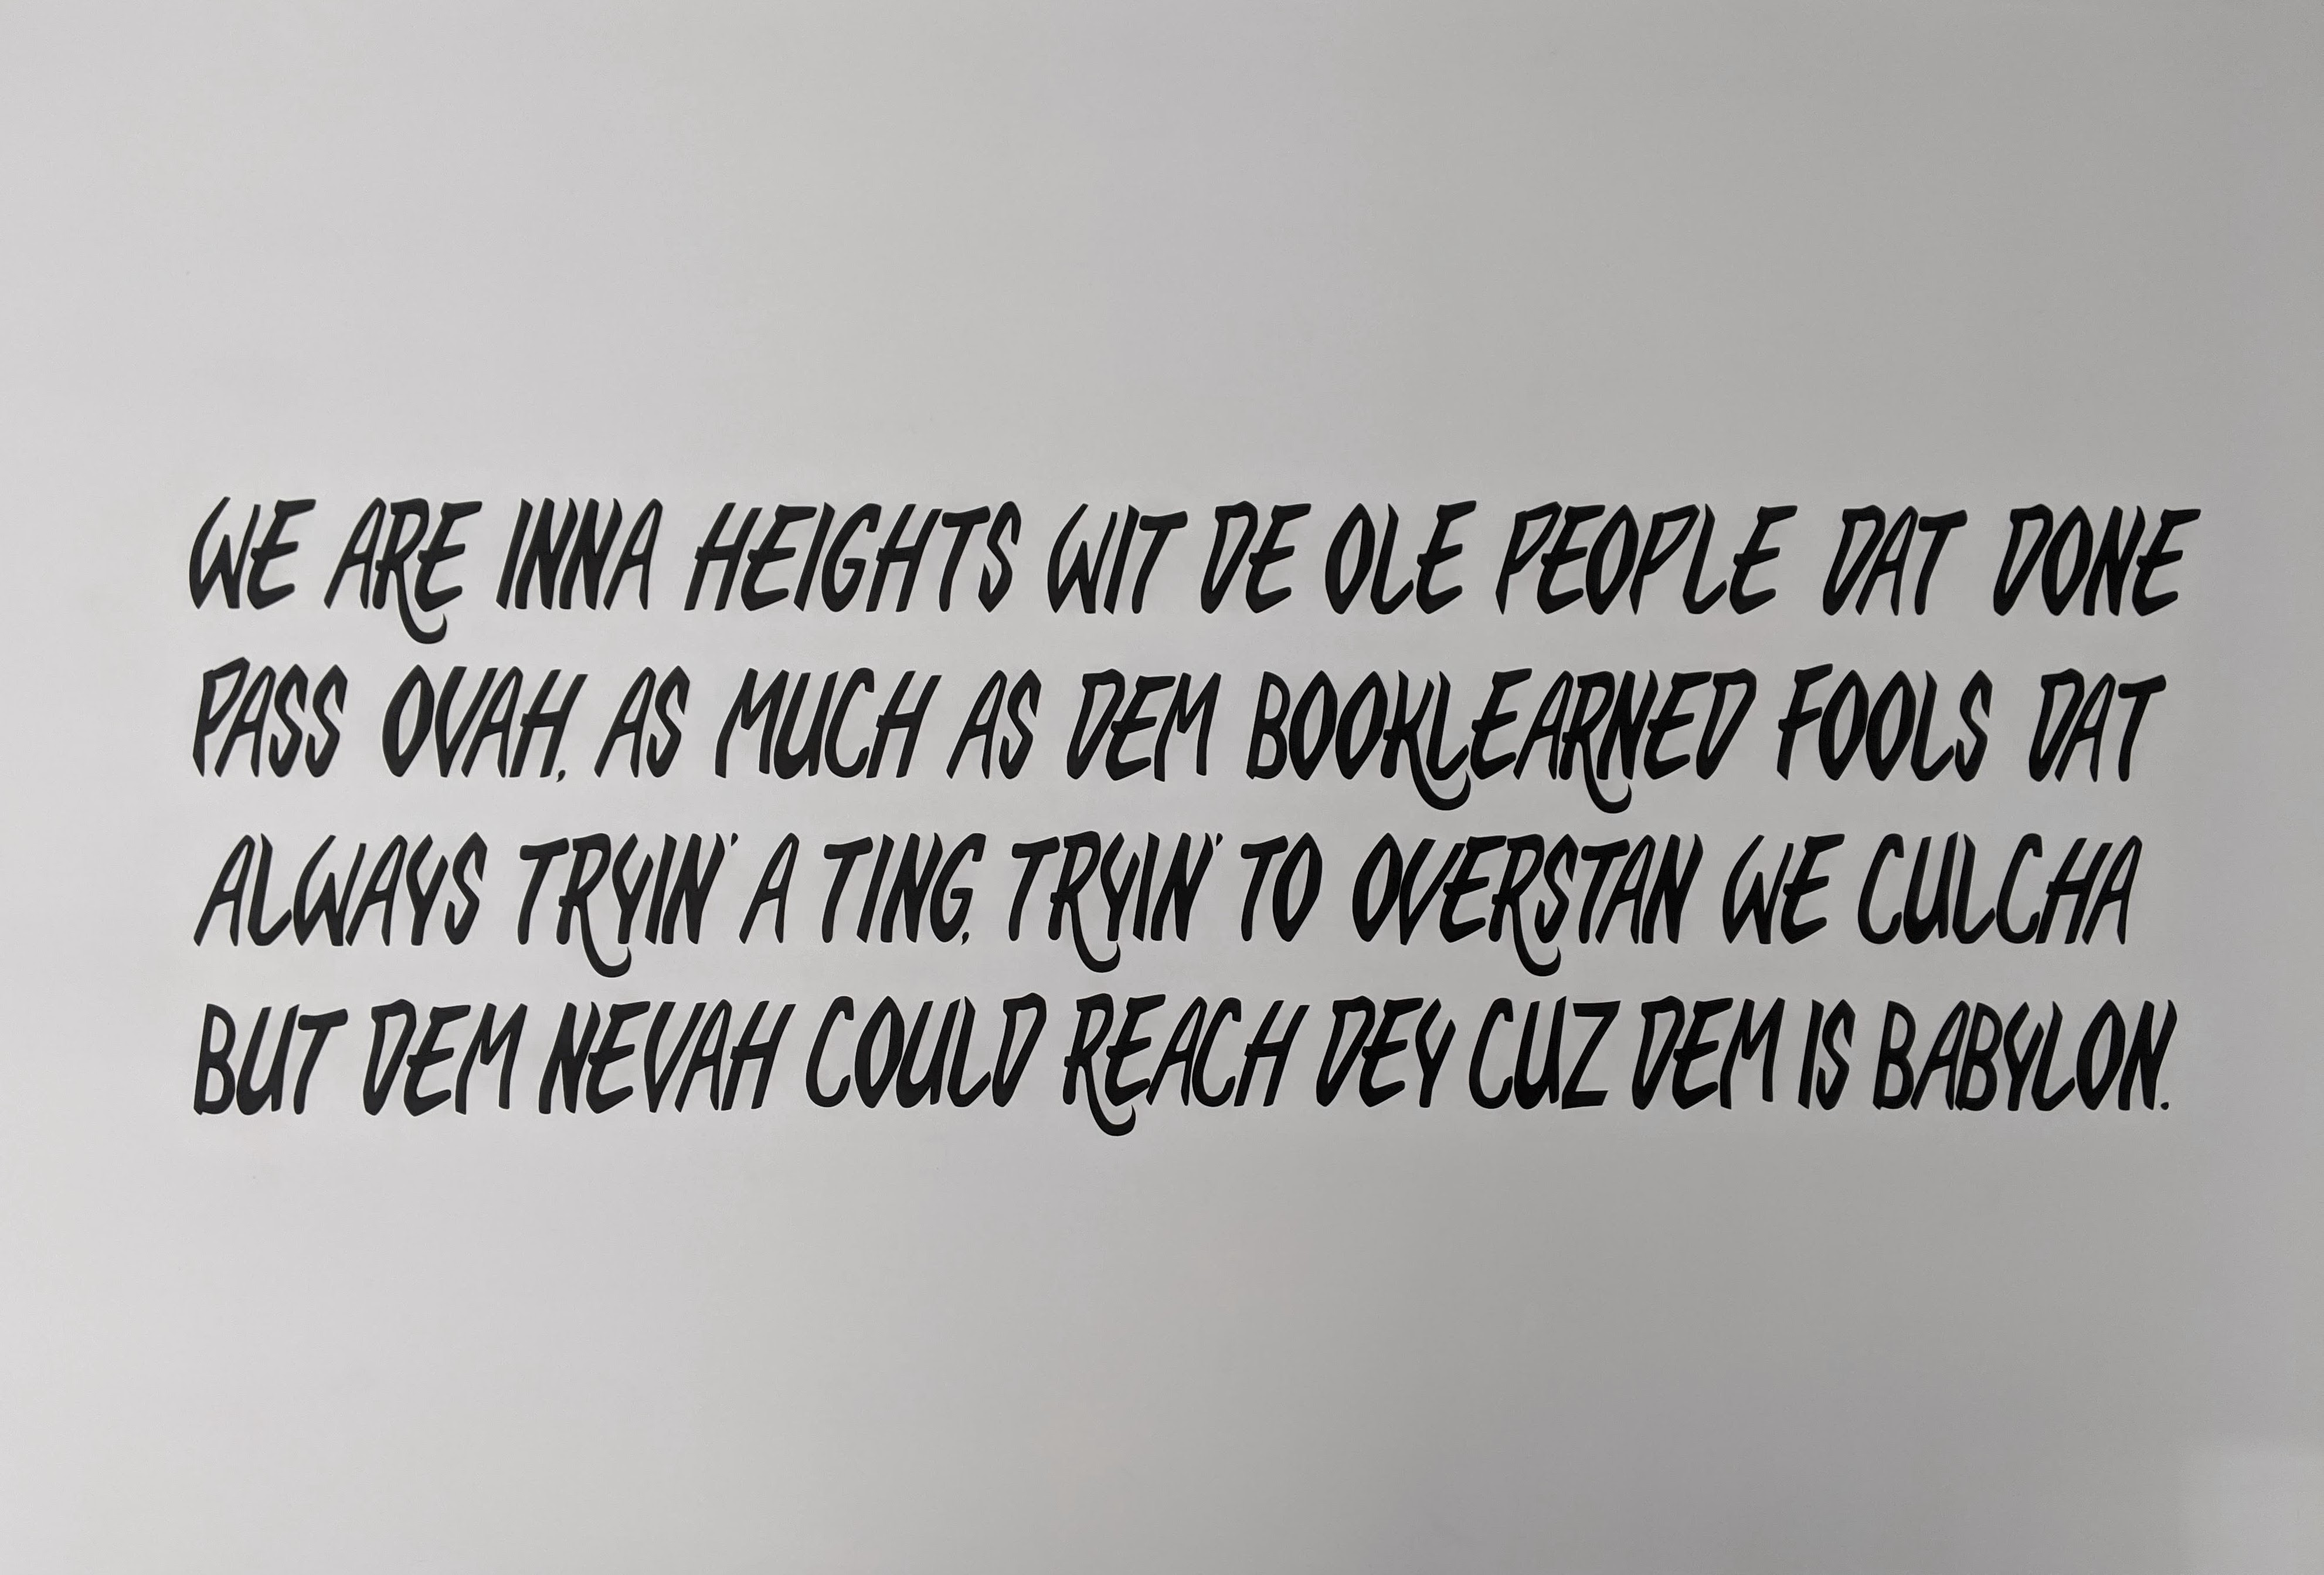 WE ARE INNA HEIGHTS WIT DE OLE PEOPLE DAT DONE
PASS OVAH, AS MUCH AS DEM BOOKLEARNED FOOLS DAT
ALWAYS TRYIN' A TING, TRYIN' TO OVERSTAN WE CULCHA
BUT DEM NEVAH COULD REACH DEY CUZ DEM IS BABYLON.